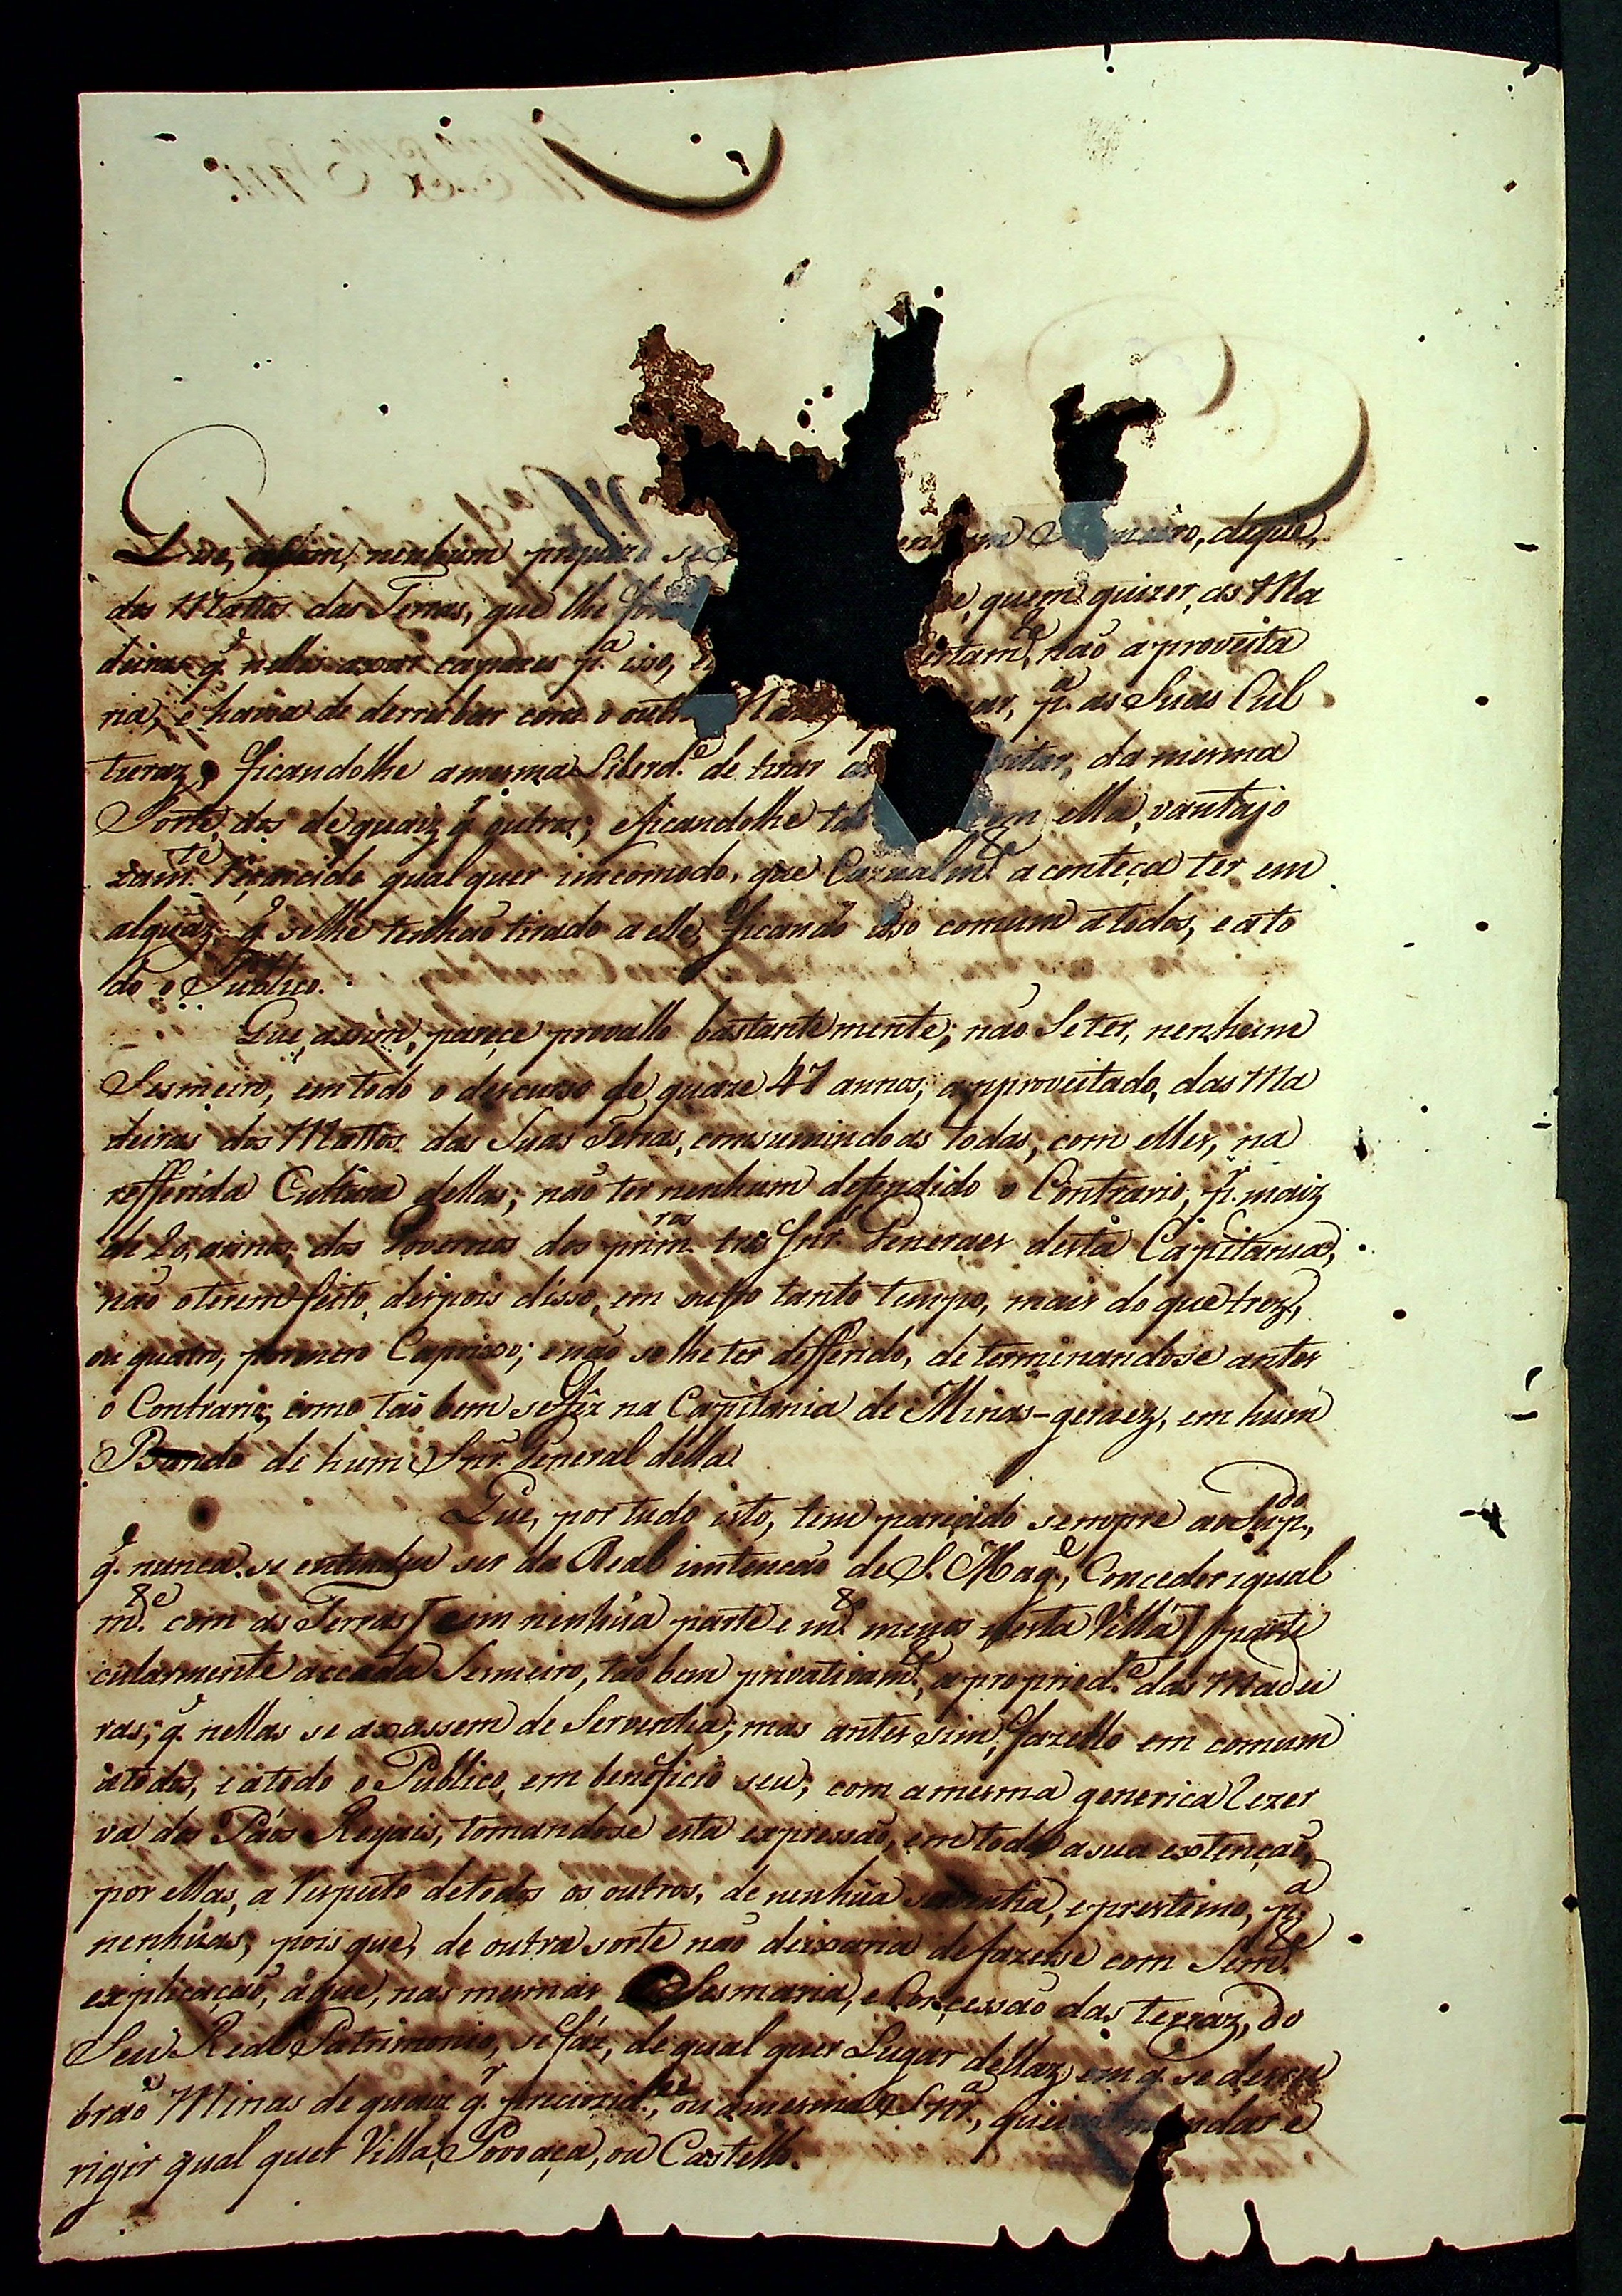 Que, assim, nenhum prejuizo se meiro, deque,
dos Mattos das Terras, que lhe fora e, quem quizer, as Ma
deiras q. nellas axar capazes p.ª isso, ertam.te, não aproveita
ria, e havia de derrubar com o outro ar, p.ª as Suas Cul
turaz; ficandolhe amesma Liberd.e de tirar as sitar, da mesma
Sorte, dos dequaiz q.r outros; eficandolhe tão em ella, vantajo
zam.te Resarcido qualquer incomodo, que Cazualm.te aconteça ter em
alguaz, q. selhe tenhaõ tirado a elle, ficando isso comum atodos, eato
do o Publico.
Que, assim, pareçe provallo bastantemente; não Se ter, nenhum
Sesmeiro, emtodo o descurso de quaze 47 annos, approveitado, das Ma
deiras dos Mattos das Suas Terras, comsumindo as todas, com elles, na
refferida Cultura dellas; não ter nenhum defendido o Contrario, p.r maiz
de 20, annos, dos Governos dos prim.ros tres Snr.es Generaes desta Capitania,
não oterem feito, despois disso, em outro tanto tempo, mais do que trez,
ou quatro, pormero Caprixo; enão selheter differido, determinandose antes
o Contrario; como tão bem sefez na Capitania de Minas-geraez, em hum
Bando de hum Snr. General della.
Que, portudo isto, tem parecido sempre ao Sup.do,
q. nunca se entendeu ser da Real intencão de S. Mag.e, Conceder igual
m.te com as Terras [em nenhũa parte e m.to menos nesta Villa] parti
cularmente accada Sesmeiro, tão bem privativam.te, a propried.e das Madei
ras; q. nellas se axassem de Serventia; mas antes sim, fazello em comum
atodos, e atodo o Publico, em beneficio seu; com amesma generica Rezer
va dos Páos Reyais, tomandose esta expressão, emtoda asua extenção,
por ellas, a Respeito detodos os outros, de nenhũa serventia, eprestimo, p.ª
nenhũas; poisque, de outra sorte não deixaria defazerse com Sem.e
explicação, áque, nas mesmas Sesmaria, e Conçessão das terraz, do
Seu Real Patrimonio, sefáz, de qual quer Lugar dellaz, em q. se descu
brão Minas de quaiz q.r precizid.es, ou amesma Snr.ª, quizer mandar e
rigir qual quer Villa, Povoaça, ou Castello.